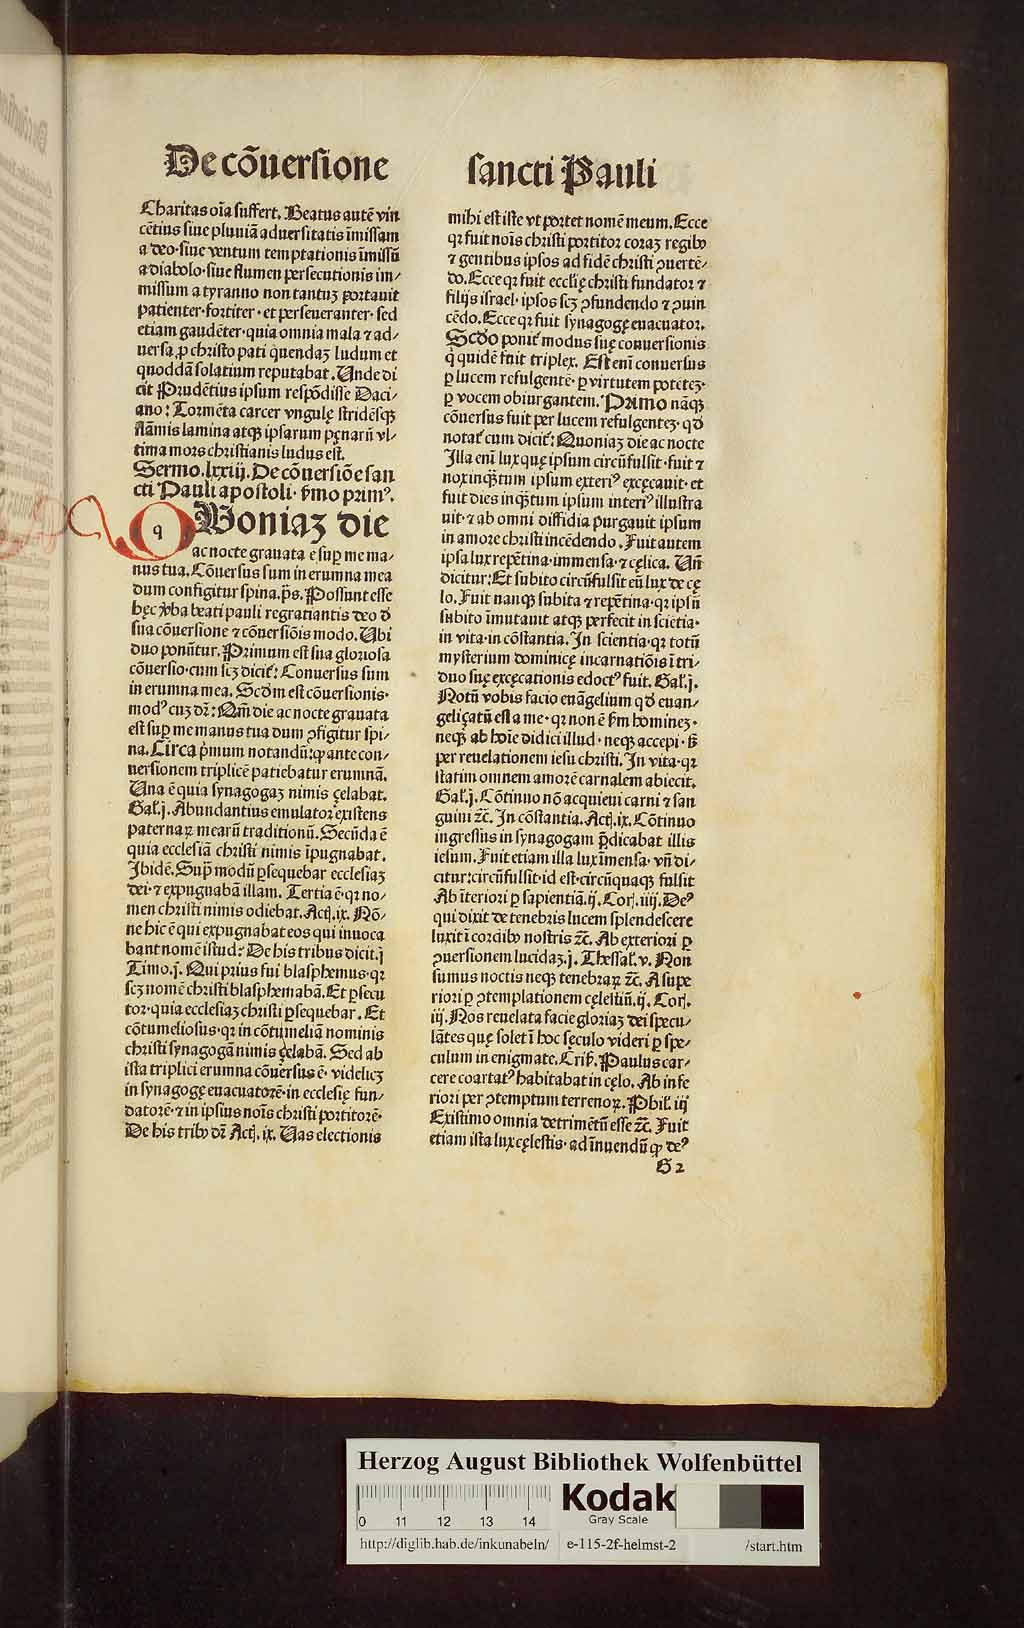 De cõuersione sancti Pauli
Charitas oĩa suffert. Beatus autẽ vin
cẽtius siue pluuiã aduersitatis ĩmissam
a deo·siue ventum temptationis ĩmissũ
a diabolo·siue flumen persecutionis im/
missum a tyranno non tantuȝ portauit
patienter·fortiter·et perseueranter·sed
etiam gaudẽter·quia omnia mala ⁊ ad/
uersa ꝓ christo pati quendaȝ ludum et
quoddã solatium reputabat. Unde di
cit Prudẽtius ipsum respõdisse Daci/
ano: Tormẽta carcer vngulę stridẽsqȝ
flãmis lamina atqȝ ipsarum pęnarũ vl/
tima mors christianis ludus est.
Sermo.lxxiij. De cõuersiõe san
cti Pauli apostoli·ṗmo primꝰ.
QUoniaȝ die
ac nocte grauata ẽ suꝑ me ma/
nus tua. Cõuersus sum in erumna mea
dum configitur spina. p̃s. Possunt esse
hęc ꝟba beati pauli regratiantis deo ď
sua cõuersione ⁊ cõuersiõis modo. Ubi
duo ponũtur. Primum est sua gloriosa
cõuersio·cum scȝ dicit̃: Conuersus sum
in erumna mea. Scďm est cõuersionis·
modꝰ cuȝ dr̃: Qm̃ die ac nocte grauata
est suꝑ me manus tua dum ꝯfigitur spi/
na. Circa ṗmum notandũ: ꝙ ante con/
uersionem triplicẽ patiebatur erumnã.
Una ẽ quia synagogaȝ nimis çelabat.
Gal̃.j. Abundantius emulatoꝛ existens
paternaꝝ mearũ traditionũ. Secũda ẽ
quia ecclesiã christi nimis ĩpugnabat.
Ibidẽ. Supꝛ modũ ꝑsequebar ecclesiaȝ
dei·⁊ expugnabã illam. Tertia ẽ·qꝛ no/
men christi nimis odiebat. Actꝭ.ix. Nõ/
ne hic ẽ qui expugnabat eos qui inuoca
bant nomẽ istud? De his tribus dicit.j
Timo.j. Qui prius fui blasphemus·qꝛ
scȝ nomẽ christi blasphemabã. Et ꝑsecu
tor·quia ecclesiaȝ christi ꝑsequebar. Et
cõtumeliosus·qꝛ in cõtumeliã nominis
christi synagogã nimis çelabã. Sed ab
ista triplici erumna cõuersus ẽ·videlicȝ
in synagogę euacuatorẽ·in ecclesię fun/
datorẽ·⁊ in ipsius noĩs christi portitorẽ·
De his tribꝰ dr̃ Actꝭ.ix. Uas electionis
mihi est iste vt portet nomẽ meum. Ecce
qꝛ fuit noĩs christi portitor coraȝ regibꝰ
⁊ gentibus ipsos ad fidẽ christi ꝯuertẽ/
do. Ecce qꝛ fuit eccl̃ię christi fundator ⁊
filijs israel·ipsos scȝ ꝯfundendo ⁊ ꝯuin
cẽdo. Ecce qꝛ fuit synagogę euacuator.
Scďo ponit̃ modus suę conuersionis
q̇ quidẽ fuit triplex. Est enĩ conuersus
ꝑ lucem refulgentẽ·ꝑ virtutem potẽteȝ·
ꝑ vocem obiurgantem. Primo nãqȝ
cõuersus fuit per lucem refulgenteȝ·qď
notat̃ cum dicit̃: Quoniaȝ die ac nocte
Illa enĩ lux quę ipsum circũfulsit·fuit ⁊
nox inqȝtum ipsum exteriꝰ excęcauit·et
fuit dies inqȝtum ipsum interiꝰ illustra
uit·⁊ ab omni diffidia purgauit ipsum
in amore christi incẽdendo. Fuit autem
ipsa lux repẽtina·immensa·⁊ cęlica. Uñ
dicitur: Et subito circũfulsit eũ lux de cę
lo. Fuit nanqȝ subita ⁊ repẽtina·qꝛ ipsũ
subito ĩmutauit atqȝ perfecit in sciẽtia·
in vita·in cõstantia. In scientia·qꝛ totũ
mysterium dominicę incarnatiõis ĩ tri/
duo suę excęcationis edoctꝰ fuit. Gal̃.j.
Notũ vobis facio euãgelium qď euan/
geliçatũ est a me·qꝛ non ẽ ẜm homineȝ·
neqȝ ab hoĩe didici illud·neqȝ accepi·ß
per reuelationem iesu christi. In vita·qꝛ
statim omnem amorẽ carnalem abiecit.
Gal̃.j. Cõtinuo nõ acquieui carni ⁊ san
guini ⁊c̃. In cõstantia. Actꝭ.ix. Cõtinuo
ingressus in synagogam p̃dicabat illis
iesum. Fuit etiam illa lux ĩmensa·vñ di/
citur: circũfulsit·id est·circũquaqȝ fulsit
Ab ĩteriori ꝑ sapientiã.ij. Corꝭ.iiij. Deꝰ
qui dixit de tenebris lucem splendescere
luxit ĩ cordibꝰ nostris ⁊c̃. Ab exteriori ꝑ
ꝯuersionem lucidaȝ.j. Thessal̃.v. Non
sumus noctis neqȝ tenebraꝝ ⁊c̃. A supe
riori ꝑ ꝯtemplationem cęlestiũ.ij. Corꝭ.
iij. Nos reuelata facie gloriaȝ dei specu/
lãtes quę solet ĩ hoc sęculo videri ꝑ spe/
culum in enigmate. Crisꝭ. Paulus car/
cere coartatꝰ habitabat in cęlo. Ab infe
riori per ꝯtemptum terrenoꝝ. Phil̃.iij
Existimo omnia detrimẽtũ esse ⁊c̃. Fuit
etiam ista lux cęlestis·ad ĩnuendũ ꝙ deꝰ
G 2
Herzog August Bibliothek Wolfenbüttel
0 11 12 13 14
Kodak
Gray Scale
http://diglib.hab.de/inkunabeln/ e-115-2f-helmst-2 /start.htm